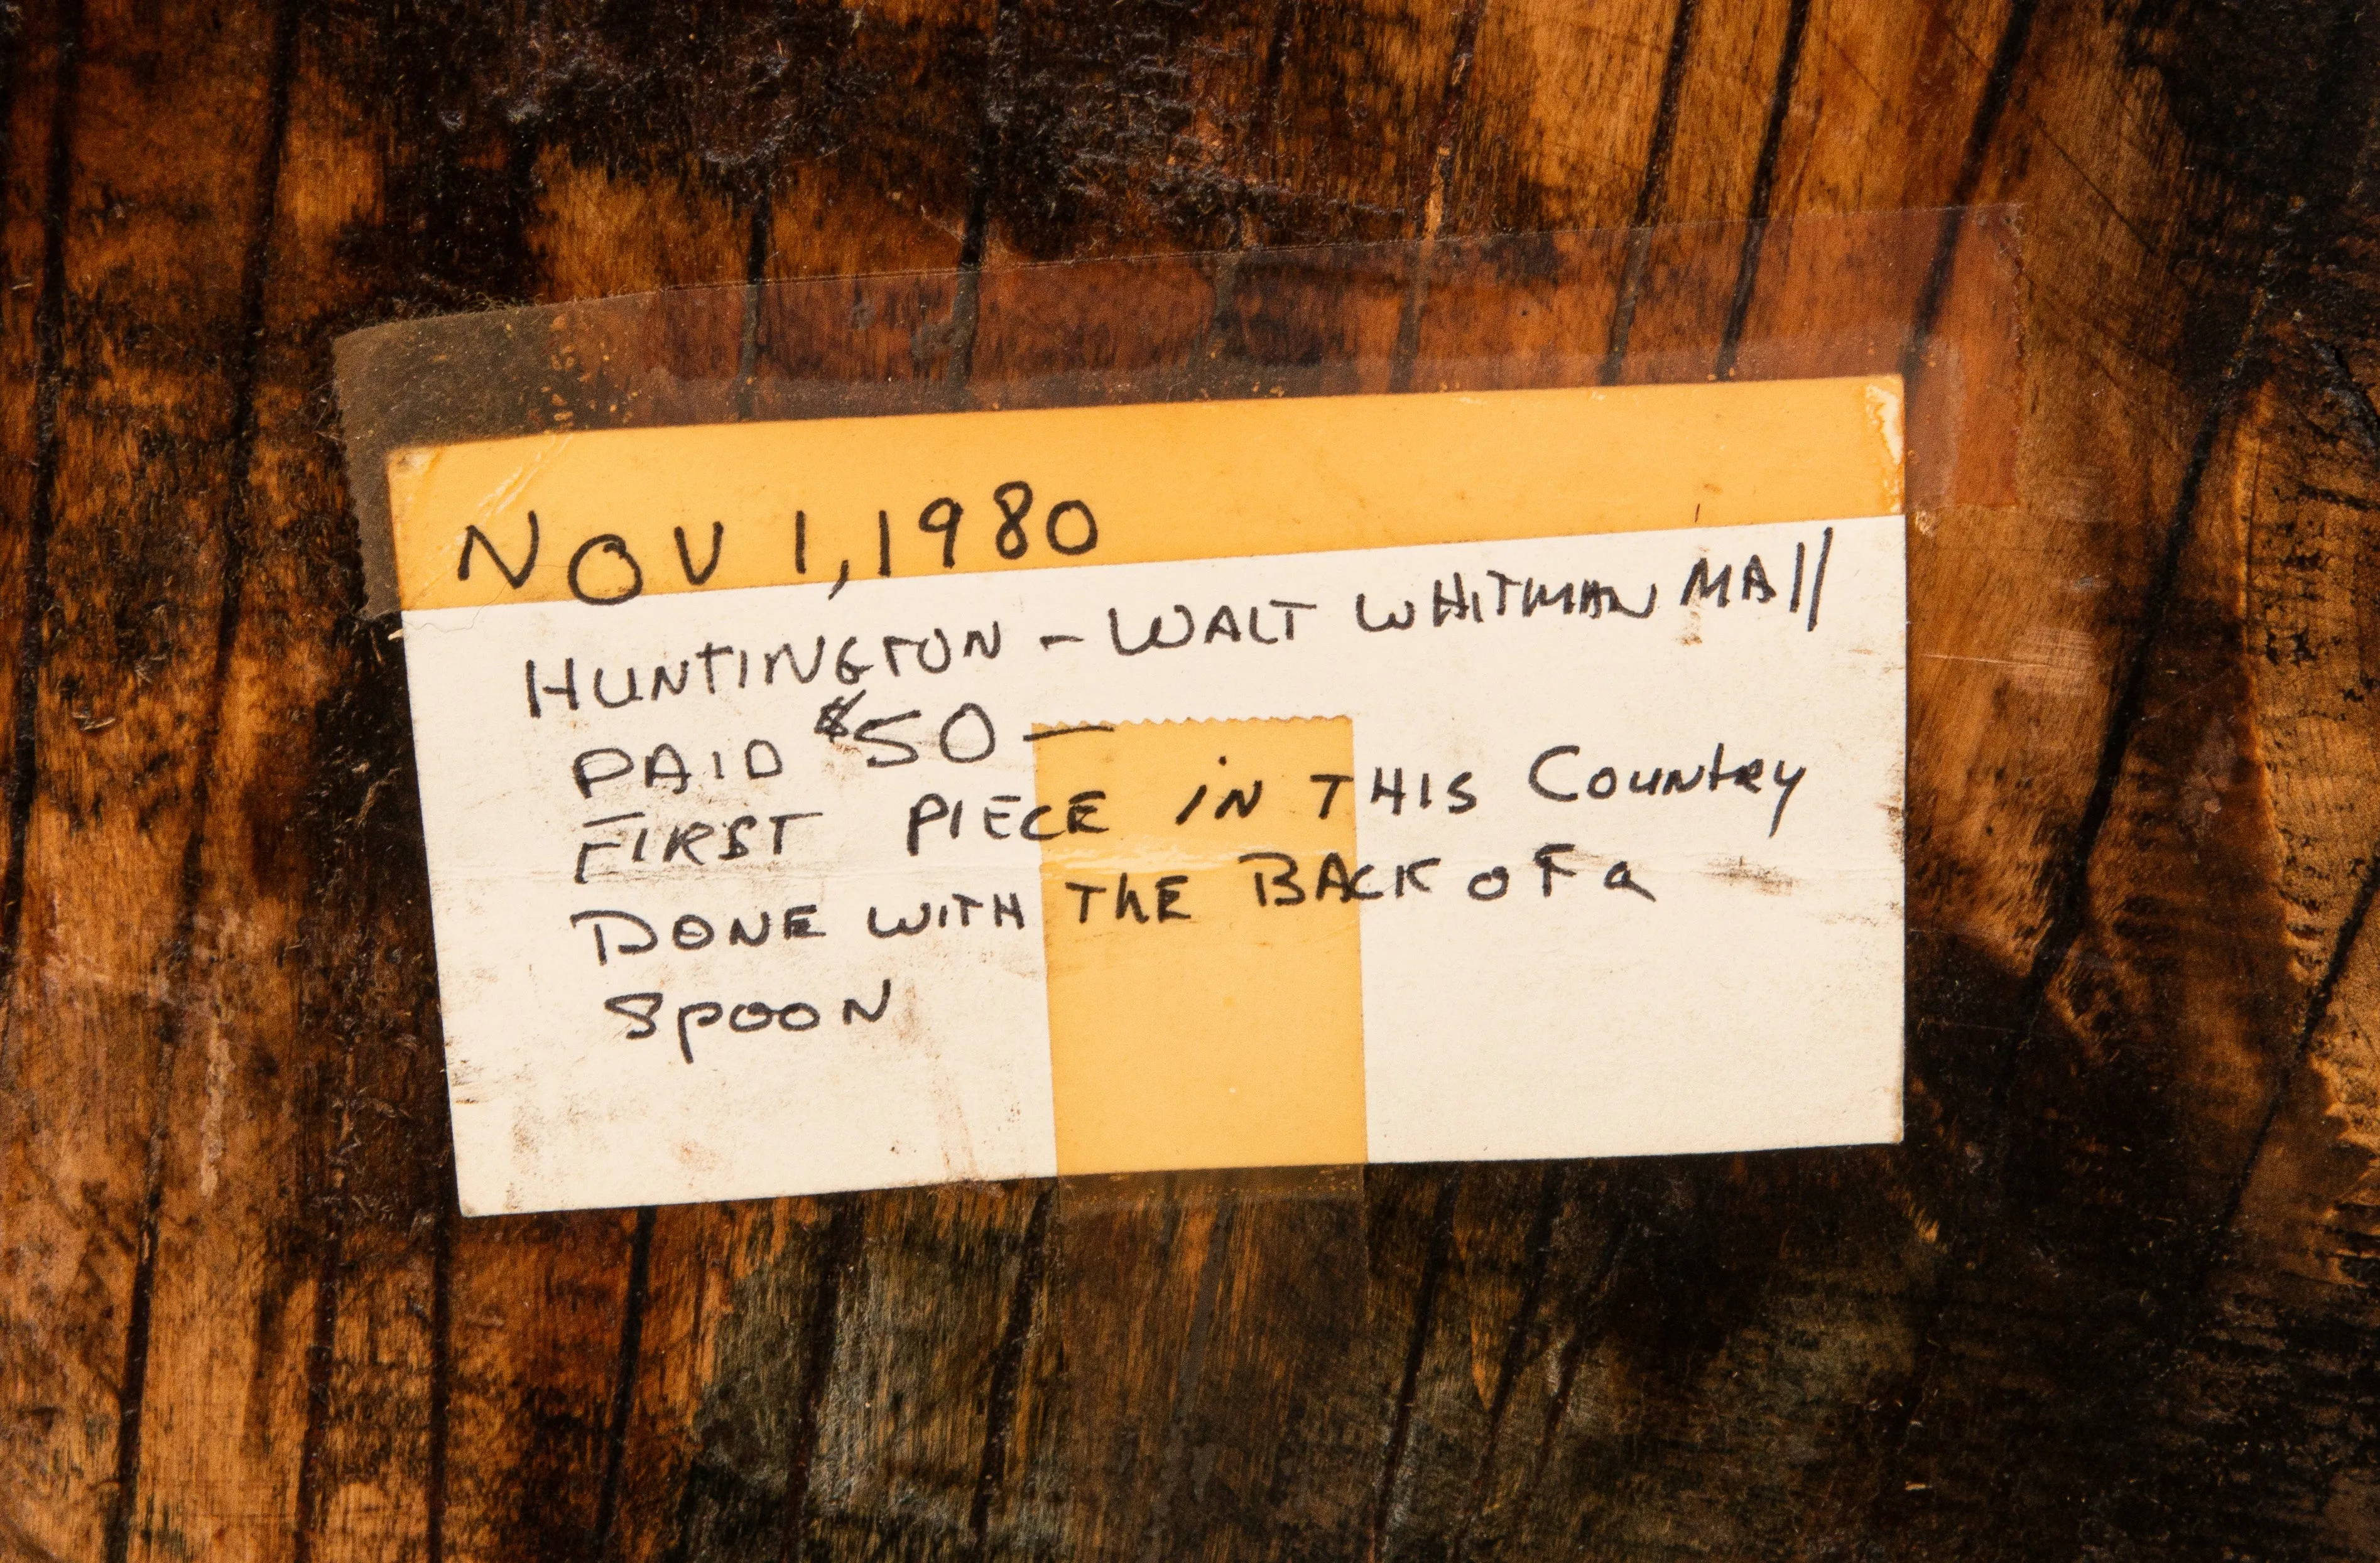 NOV 1, 1980
HUNTINGTON - WALT WHITMAN MAll
PAID $50 —
FIRST PIECE iN THIS Country
DONE WITH THE BACK OF a
SPOON